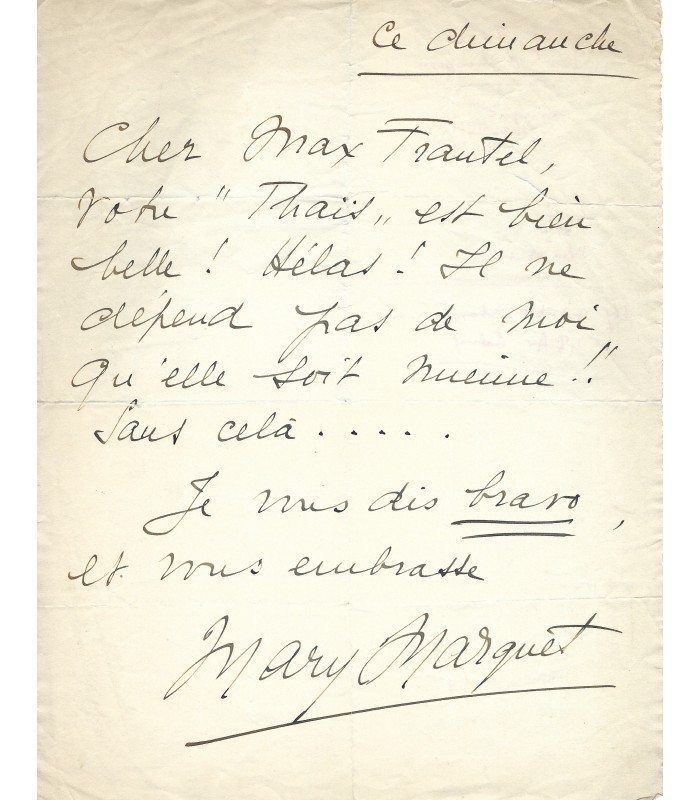 Ce dimanche
Cher Max Frantel,
Votre "Thaïs" est bien
belle ! Hélas ! Il ne
dépend pas de moi
qu'elle soit mienne !!
Sans celà . . . . .
Je vous dis bravo,
et vous embrasse
Mary Marquet